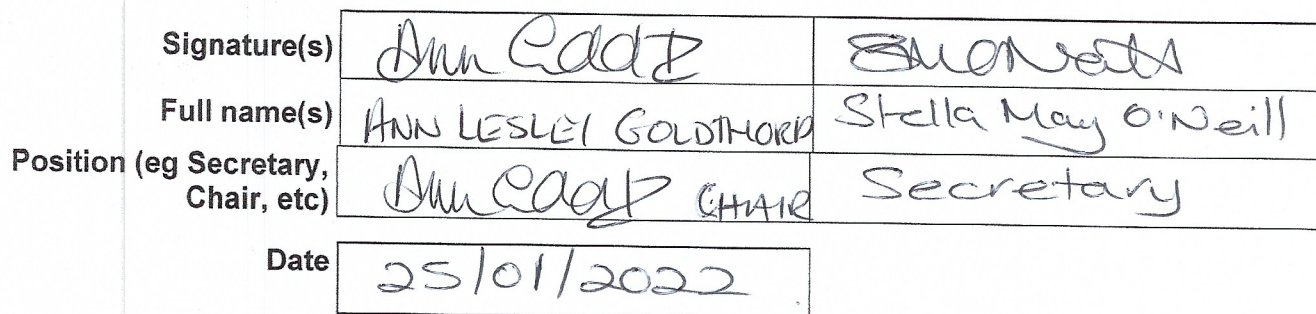 Signature(s) Ann
Full name(s) ANN LESLEY GOLDTHORP Stella May O'Neill
Position (eg Secretary,
Chair, etc) Ann CHAIR Secretary
Date 25/01/2022